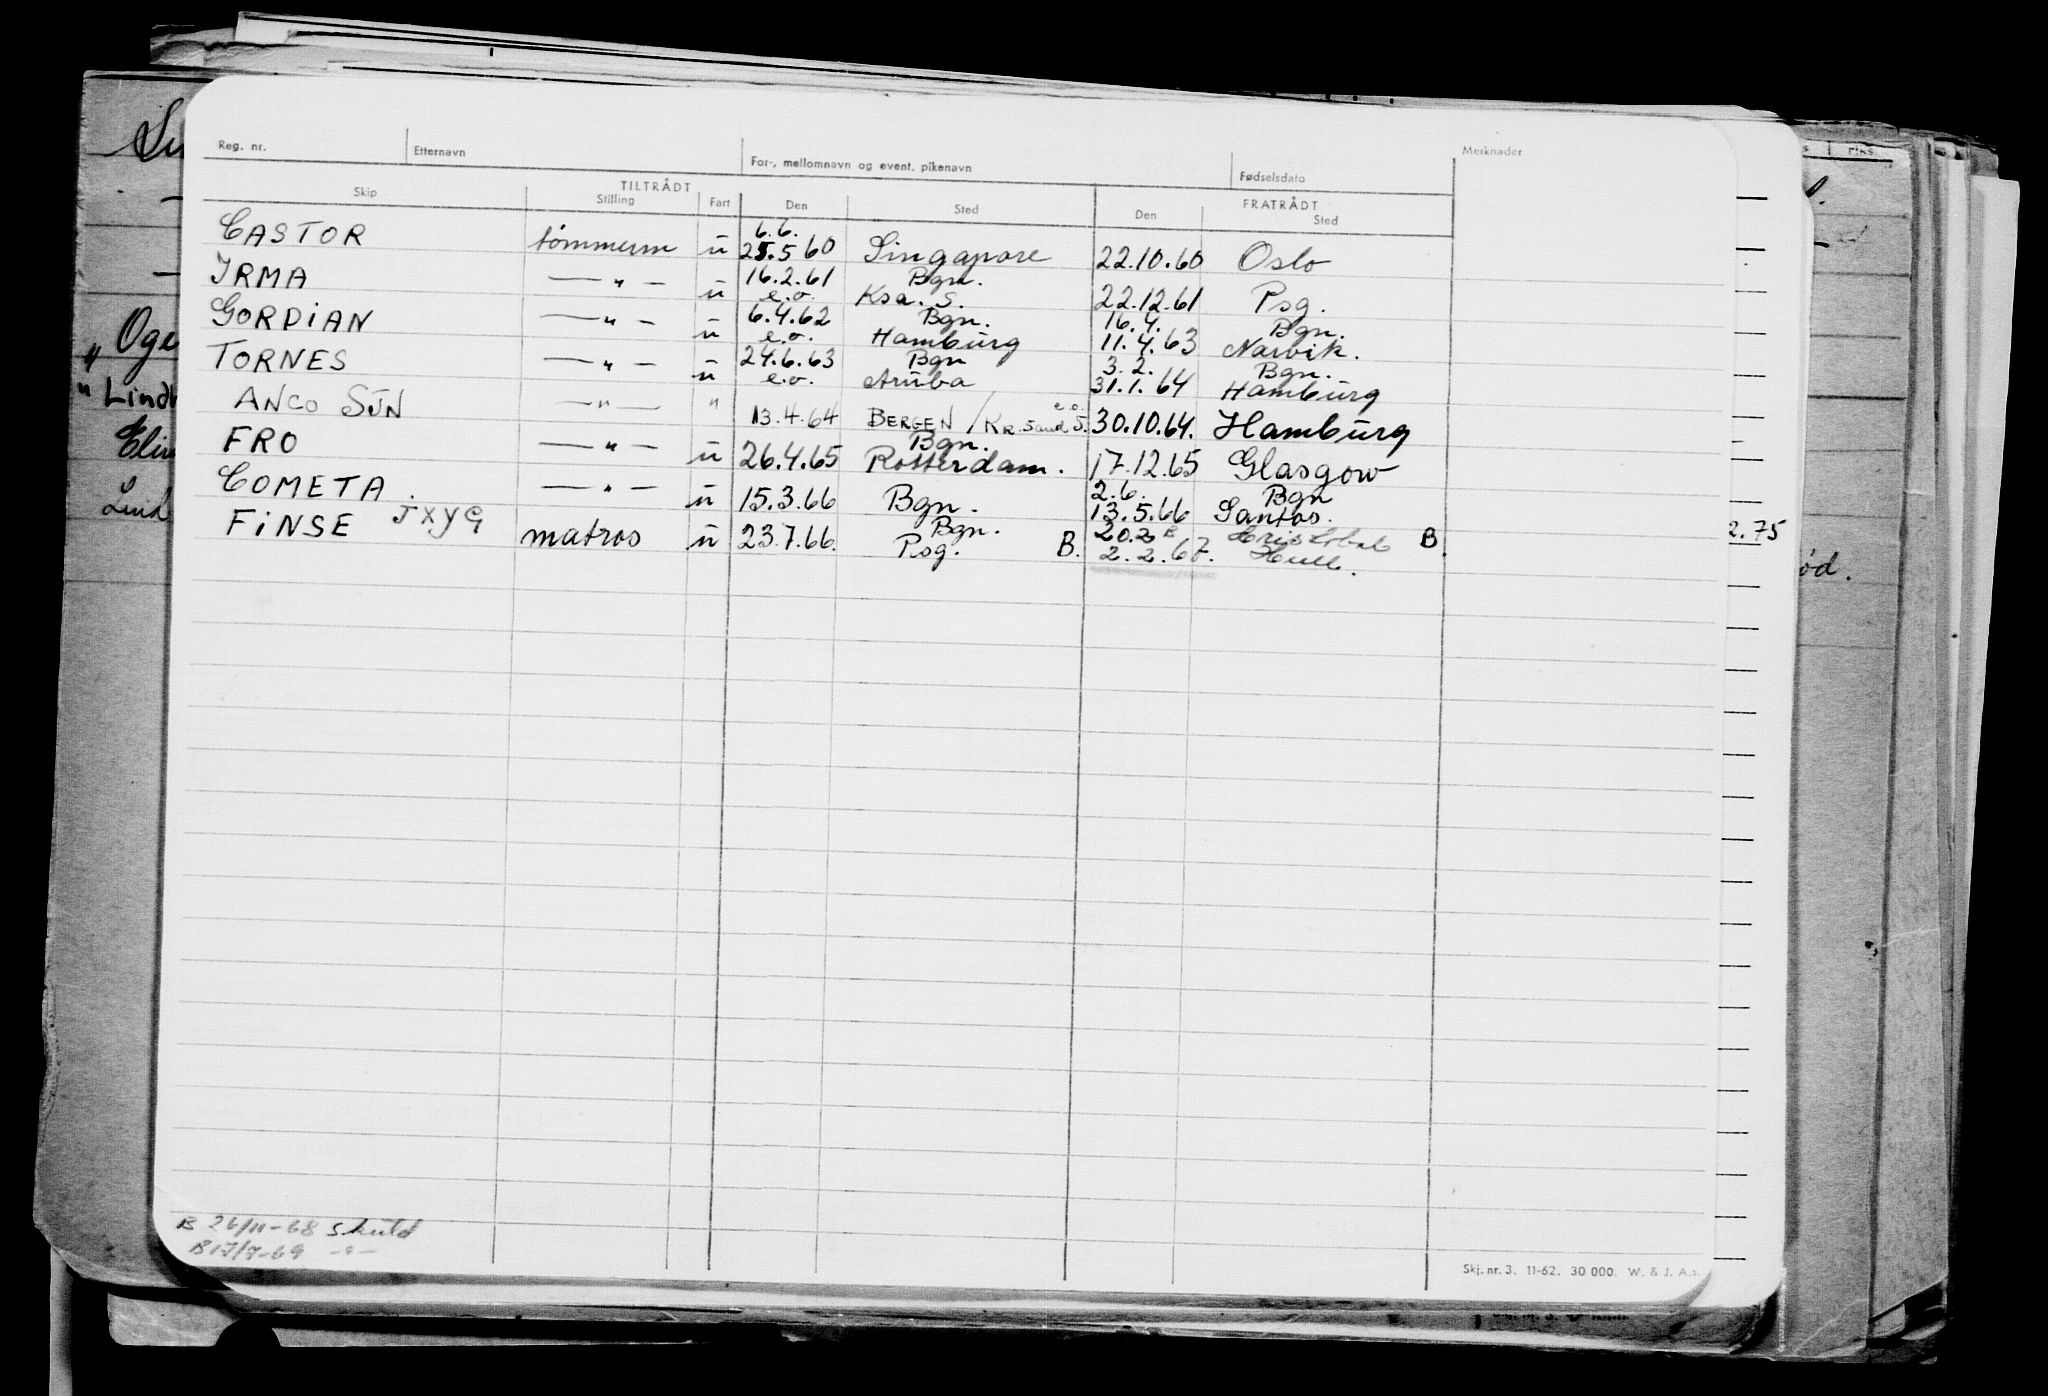 Reg. nr. Etternavn For-, mellomnavn og event. pikenavn Fødselsdato Merknader
TILTRÅDT FRATRÅDT
Skip Stilling Fart Den Sted Den Sted
6.6.
CASTOR tømmerm u 25.5 60 Singapore 22.10.60 Oslo
16.2.61 Bgn.
IRMA — " — u e.o. Ksa. S. 22.12.61 Psg.
6.4.62 Bgn. 16.4. Bgn.
GORDIAN — " — u e.o. Hamburg 11.4.63 Narvik.
24.6.63 Bgn 3.2. Bgn.
TORNES — " — u e.o. Aruba 31.1.64 Hamburg
e.o.
ANCO SUN — " — " 13.4.64 BERGEN / KR.Sand S. 30.10.64. Hamburg
Bgn.
FRO — " — u 26.4.65 Rotterdam. 17.12.65 Glasgow
2.6. Bgn
COMETA. — " — u 15.3.66 Bgn. 13.5.66 Santos.
Bgn. 20.2 B
FINSE JXYG matros u 23.7.66. Psg. B. 2.2.67. Hull. B.
B 26/11-68 Skuld
B 17/7-69 — " —
Skj. nr. 3. 11-62. 30 000. W. & J. A.s.
Oge
" Lindt
Elin
Lind
2.75
ød.